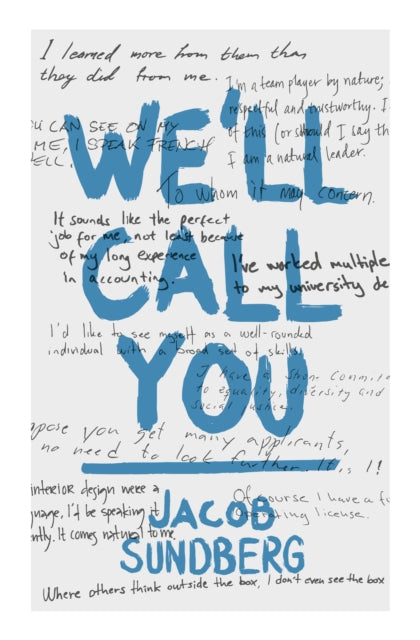 I learned more from them than
they did from me.
I'm a team player by nature;
respectful and trustworthy. I
of this (or should I say th
I am a natural leader.
U CAN SEE ON MY
ME, I SPEAK FRENCH
ELL.
WE'LL
To whom it may concern.
It sounds like the perfect
job for me, not least because
of my long experience
in accounting.
CALL
I've worked multiple
to my university de
I'd like to see myself as a well-rounded
individual with a broad set of skills.
YOU
I have a strong commit
to equality, diversity and
social justice.
pose you get many applicants,
no need to look further. It is I!
interior design were a
nguage, I'd be speaking it
ntly. It comes natural to me.
Of course I have a fu
operating license.
JACOB
SUNDBERG
Where others think outside the box, I don't even see the box